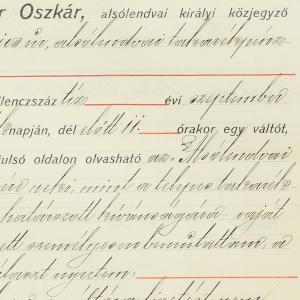 r Oszkár, alsólendvai királyi közjegyző
úr, alsólendvai takarékpénz-
ilencszáz tíz évi szeptember
napján, dél előtt 11 órakor egy váltót,
tulsó oldalon olvasható az "Alsólendvai
neki, mint a telepes takarék-
határozott kivánságára saját
ett személyesen bemutattam, a
álaszt nyertem: